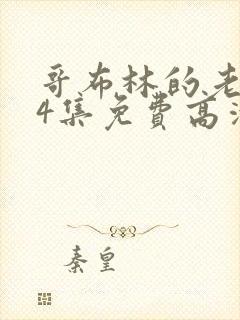 哥布林的老
4集免费高清
秦皇